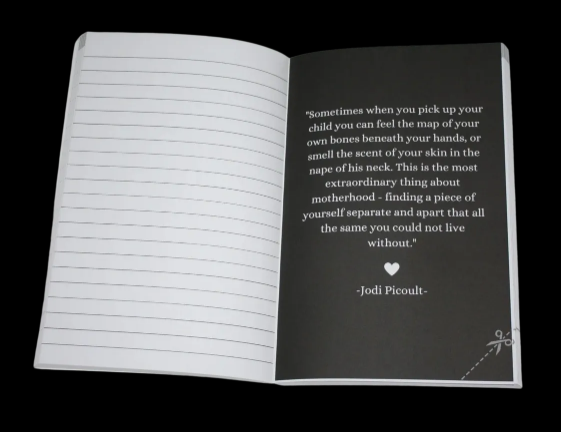 "Sometimes when you pick up your
child you can feel the map of your
own bones beneath your hands, or
smell the scent of your skin in the
nape of his neck. This is the most
extraordinary thing about
motherhood - finding a piece of
yourself separate and apart that all
the same you could not live
without."
-Jodi Picoult-